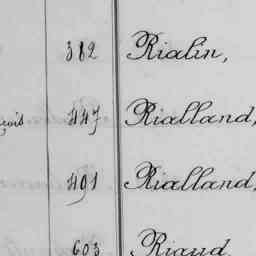 382 Rialin,
447 Rialland,
491 Rialland,
603 Riaud